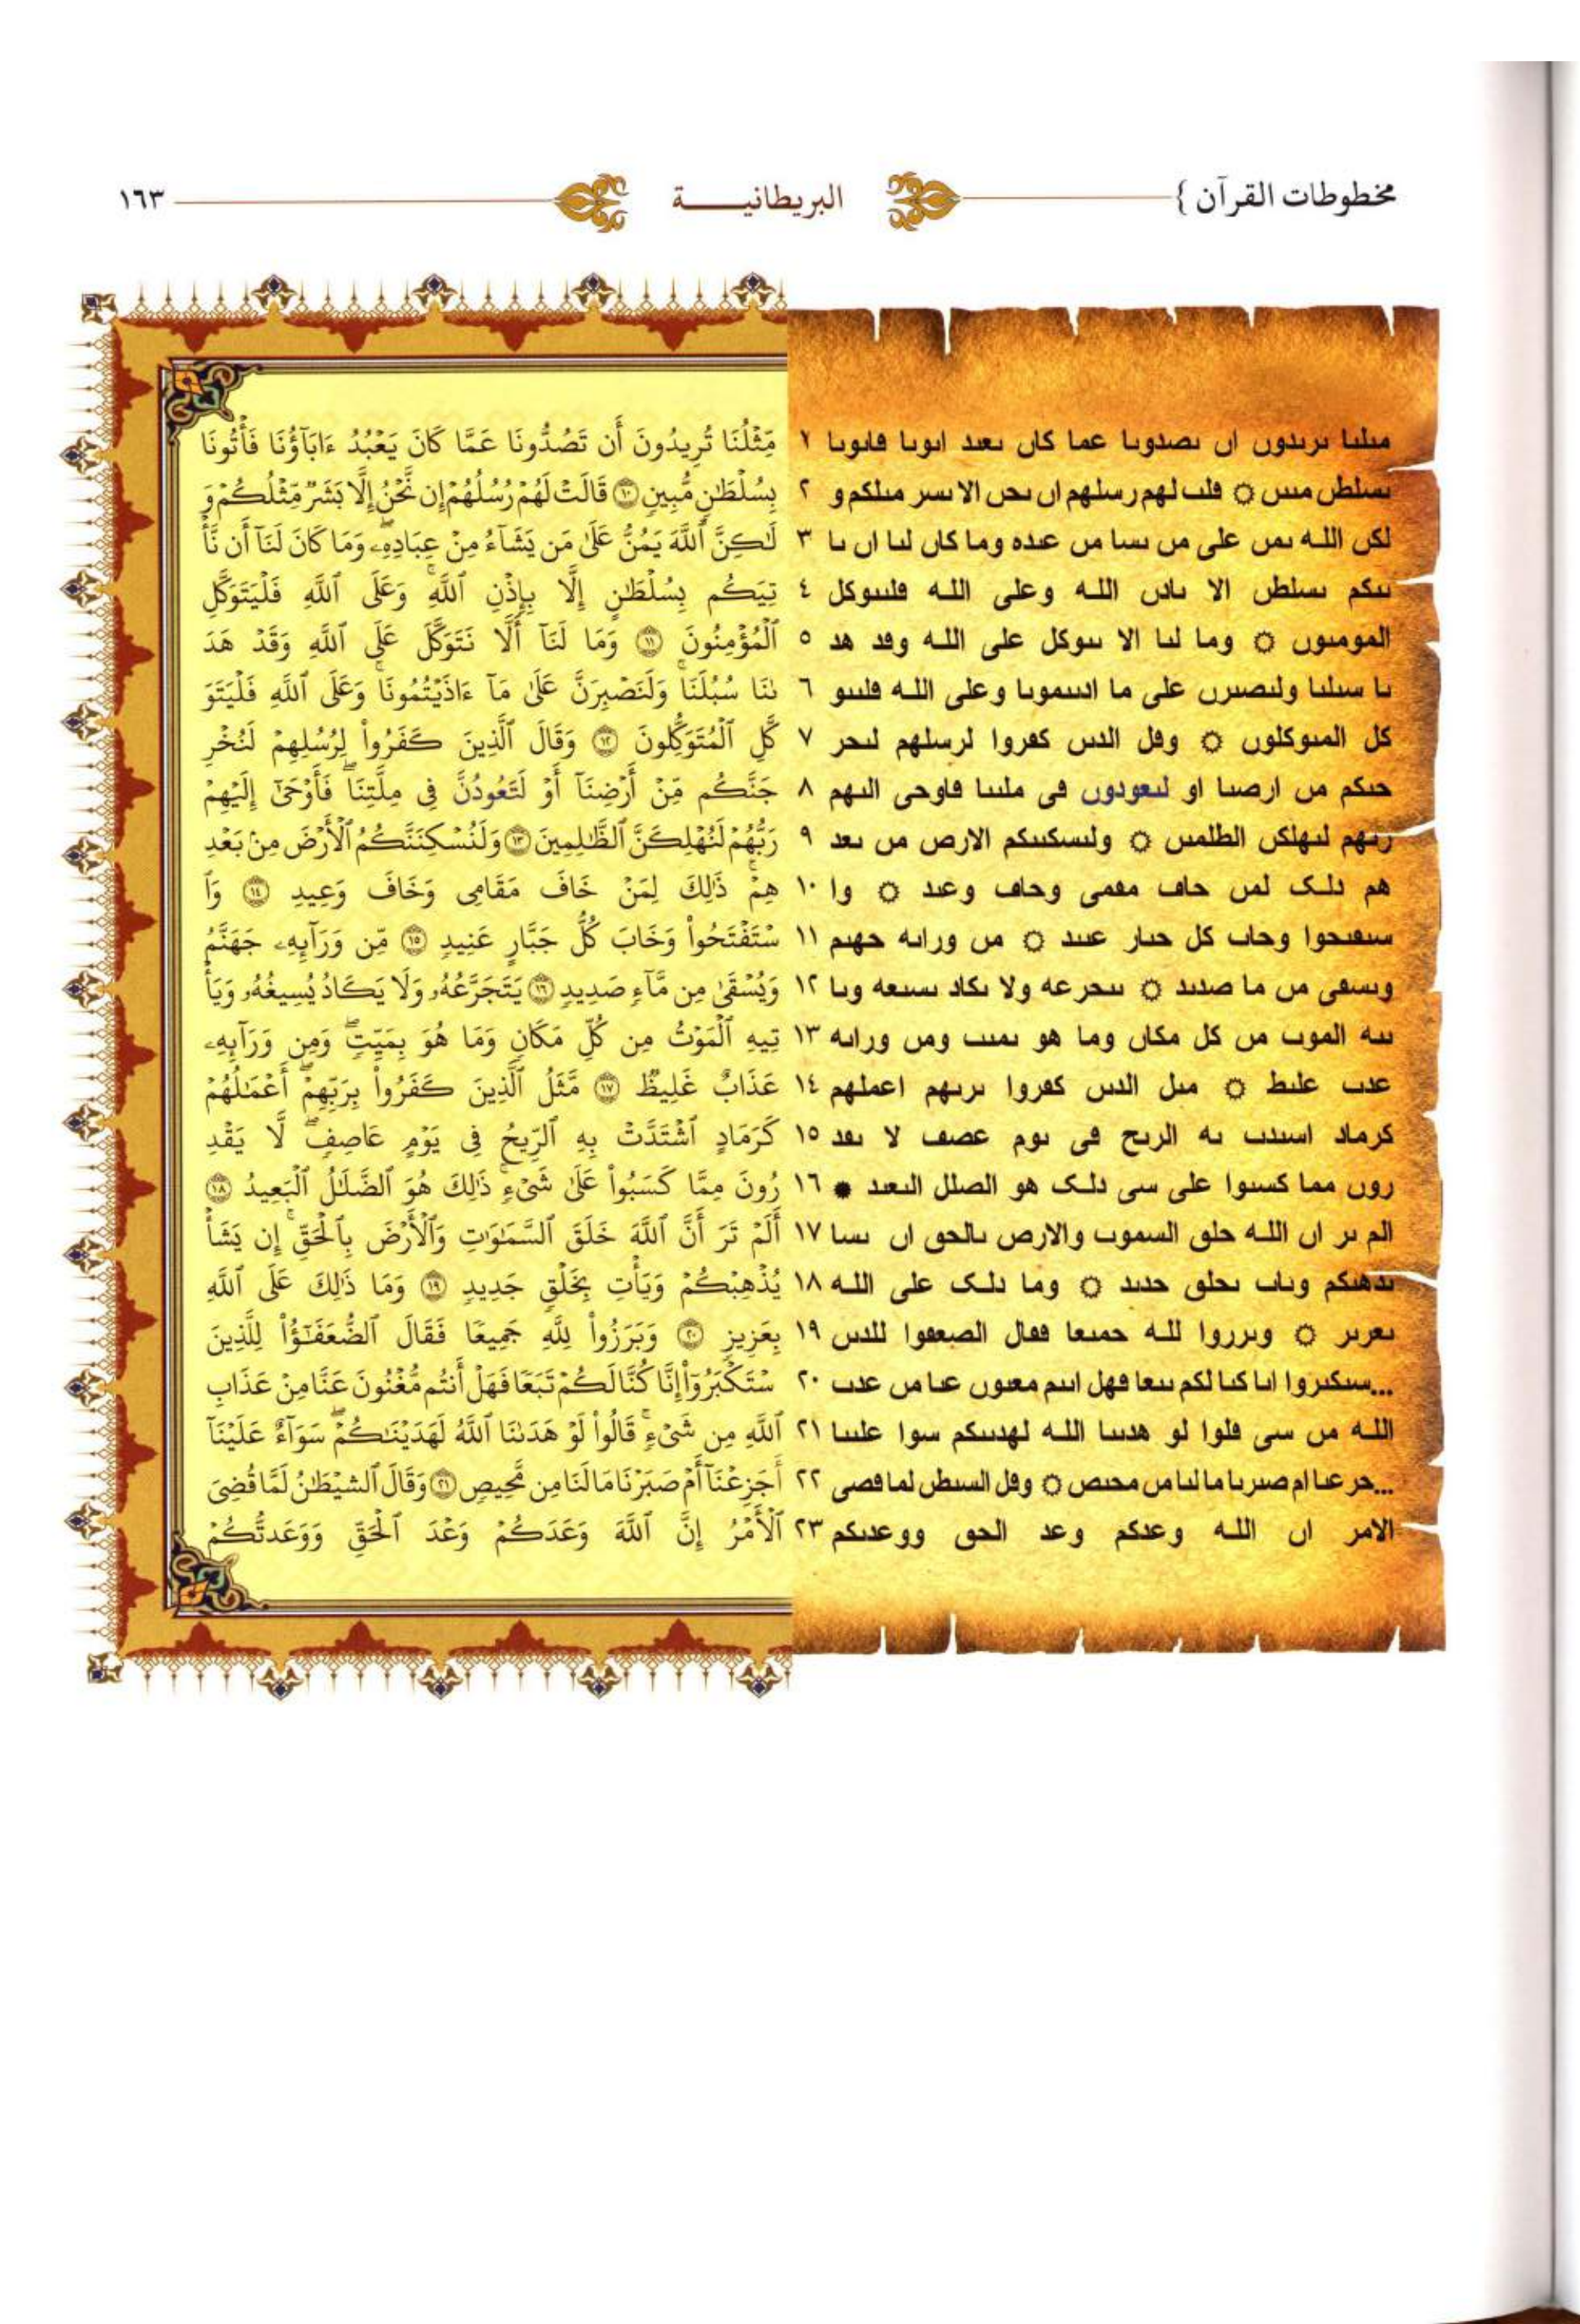 مخطوطات القرآن }
البريطانيـــــة
١٦٣
مٮلٮا ٮرٮدوں اں ٮصدوٮا عما كاں ٮعٮد اٮوٮا ڡاٮوٮا ١
ٮسلطں مٮٮں ۝ ڡلٮ لهم رسلهم اں ٮحں الا ٮسر مٮلكم و ٢
لكں الله ٮمں على مں ٮسا مں عٮده وما كاں لٮا اں ٮا ٣
ٮٮكم ٮسلطں الا ٮادں الله وعلى الله ڡلٮٮوكل ٤
المومٮوں ۝ وما لٮا الا ٮٮوكل على الله وڡد هد ٥
ٮا سٮلٮا ولٮصٮرں على ما ادٮٮموٮا وعلى الله ڡلٮٮو ٦
كل المٮوكلوں ۝ وڡل الدٮں كڡروا لرسلهم لٮحر ٧
حٮكم مں ارصٮا او لٮعودوں ڡى ملٮٮا ڡاوحى الٮهم ٨
رٮهم لٮهلكں الطلمٮں ۝ ولٮسكٮٮكم الارص مں ٮعد ٩
هم دلک لمں حاڡ مڡمى وحاڡ وعٮد ۝ وا ١٠
سٮڡٮحوا وحاٮ كل حٮار عٮٮد ۝ مں وراٮه حهٮم ١١
وٮسڡى مں ما صدٮد ۝ ٮٮحرعه ولا ٮكاد ٮسٮعه وٮا ١٢
ٮٮه الموٮ مں كل مكاں وما هو ٮمٮٮ ومں وراٮه ١٣
عدٮ علٮط ۝ مٮل الدٮں كڡروا ٮرٮهم اعملهم ١٤
كرماد اسٮدٮ ٮه الرٮح ڡى ٮوم عصڡ لا ٮڡد ١٥
روں مما كسٮوا على سى دلک هو الصلل الٮعٮد ۝ ١٦
الم ٮر اں الله حلٯ السموٮ والارص ٮالحٯ اں ٮسا ١٧
ٮدهٮكم وٮاٮ ٮحلٯ حدٮد ۝ وما دلک على الله ١٨
ٮعرٮر ۝ وٮرروا لله حمٮعا ڡڡال الصعڡوا للدٮں ١٩
...سٮكٮروا اٮا كٮا لكم ٮٮعا ڡهل اٮٮم معٮوں عٮا مں عدٮ ٢٠
الله مں سى ڡلوا لو هدٮٮا الله لهدٮٮكم سوا علٮٮا ٢١
...حرعٮا ام صٮرٮا ما لٮا مں محٮص ۝ وڡل السٮطں لما ڡصى ٢٢
الامر اں الله وعدكم وعد الحٯ ووعدٮكم ٢٣
مِّثْلُنَا تُرِيدُونَ أَن تَصُدُّونَا عَمَّا كَانَ يَعْبُدُ ءَابَآؤُنَا فَأْتُونَا
بِسُلْطَٰنٍ مُّبِينٍ ١٠ قَالَتْ لَهُمْ رُسُلُهُمْ إِن نَّحْنُ إِلَّا بَشَرٌ مِّثْلُكُمْ وَ
لَٰكِنَّ ٱللَّهَ يَمُنُّ عَلَىٰ مَن يَشَآءُ مِنْ عِبَادِهِۦۖ وَمَا كَانَ لَنَآ أَن نَّأْ
تِيَكُم بِسُلْطَٰنٍ إِلَّا بِإِذْنِ ٱللَّهِۚ وَعَلَى ٱللَّهِ فَلْيَتَوَكَّلِ
ٱلْمُؤْمِنُونَ ١١ وَمَا لَنَآ أَلَّا نَتَوَكَّلَ عَلَى ٱللَّهِ وَقَدْ هَدَ
ىٰنَا سُبُلَنَاۚ وَلَنَصْبِرَنَّ عَلَىٰ مَآ ءَاذَيْتُمُونَاۚ وَعَلَى ٱللَّهِ فَلْيَتَوَ
كَّلِ ٱلْمُتَوَكِّلُونَ ١٢ وَقَالَ ٱلَّذِينَ كَفَرُوا۟ لِرُسُلِهِمْ لَنُخْرِ
جَنَّكُم مِّنْ أَرْضِنَآ أَوْ لَتَعُودُنَّ فِى مِلَّتِنَاۖ فَأَوْحَىٰٓ إِلَيْهِمْ
رَبُّهُمْ لَنُهْلِكَنَّ ٱلظَّٰلِمِينَ ١٣ وَلَنُسْكِنَنَّكُمُ ٱلْأَرْضَ مِنۢ بَعْدِ
هِمْۚ ذَٰلِكَ لِمَنْ خَافَ مَقَامِى وَخَافَ وَعِيدِ ١٤ وَٱ
سْتَفْتَحُوا۟ وَخَابَ كُلُّ جَبَّارٍ عَنِيدٍ ١٥ مِّن وَرَآئِهِۦ جَهَنَّمُ
وَيُسْقَىٰ مِن مَّآءٍ صَدِيدٍ ١٦ يَتَجَرَّعُهُۥ وَلَا يَكَادُ يُسِيغُهُۥ وَيَأْ
تِيهِ ٱلْمَوْتُ مِن كُلِّ مَكَانٍ وَمَا هُوَ بِمَيِّتٍۖ وَمِن وَرَآئِهِۦ
عَذَابٌ غَلِيظٌ ١٧ مَّثَلُ ٱلَّذِينَ كَفَرُوا۟ بِرَبِّهِمْۖ أَعْمَٰلُهُمْ
كَرَمَادٍ ٱشْتَدَّتْ بِهِ ٱلرِّيحُ فِى يَوْمٍ عَاصِفٍۖ لَّا يَقْدِ
رُونَ مِمَّا كَسَبُوا۟ عَلَىٰ شَىْءٍۚ ذَٰلِكَ هُوَ ٱلضَّلَٰلُ ٱلْبَعِيدُ ١٨
أَلَمْ تَرَ أَنَّ ٱللَّهَ خَلَقَ ٱلسَّمَٰوَٰتِ وَٱلْأَرْضَ بِٱلْحَقِّۚ إِن يَشَأْ
يُذْهِبْكُمْ وَيَأْتِ بِخَلْقٍ جَدِيدٍ ١٩ وَمَا ذَٰلِكَ عَلَى ٱللَّهِ
بِعَزِيزٍ ٢٠ وَبَرَزُوا۟ لِلَّهِ جَمِيعًا فَقَالَ ٱلضُّعَفَٰٓؤُا۟ لِلَّذِينَ
سْتَكْبَرُوٓا۟ إِنَّا كُنَّا لَكُمْ تَبَعًا فَهَلْ أَنتُم مُّغْنُونَ عَنَّا مِنْ عَذَابِ
ٱللَّهِ مِن شَىْءٍۚ قَالُوا۟ لَوْ هَدَىٰنَا ٱللَّهُ لَهَدَيْنَٰكُمْۖ سَوَآءٌ عَلَيْنَآ
أَجَزِعْنَآ أَمْ صَبَرْنَا مَا لَنَا مِن مَّحِيصٍ ٢١ وَقَالَ ٱلشَّيْطَٰنُ لَمَّا قُضِىَ
ٱلْأَمْرُ إِنَّ ٱللَّهَ وَعَدَكُمْ وَعْدَ ٱلْحَقِّ وَوَعَدتُّكُمْ